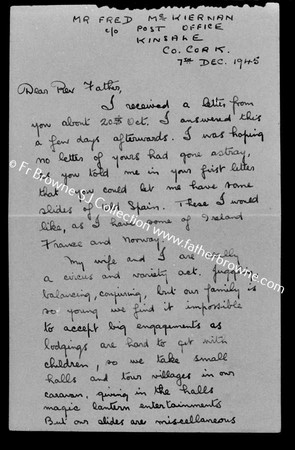 MR FRED McKIERNAN
c/o POST OFFICE
KINSALE
CO. CORK.
7TH DEC. 1945
Dear Rev Father,
I received a letter from
you about 20th Oct. I answered this
a few days afterwards. I was hoping
no letter of yours had gone astray,
as you told me in your first letter
that you could let me have some
slides of Spain. These I would
like, as I have some of Ireland
France and Norway.
My wife and I are really
a circus and variety act. Juggling
balancing, conjuring, but our family is
so young we find it impossible
to accept big engagements as
lodgings are hard to get with
children, so we take small
halls and tour villages in our
caravan, giving in the halls
magic lantern entertainments
But our slides are miscellaneous
© Fr Browne SJ Collection www.fatherbrowne.com